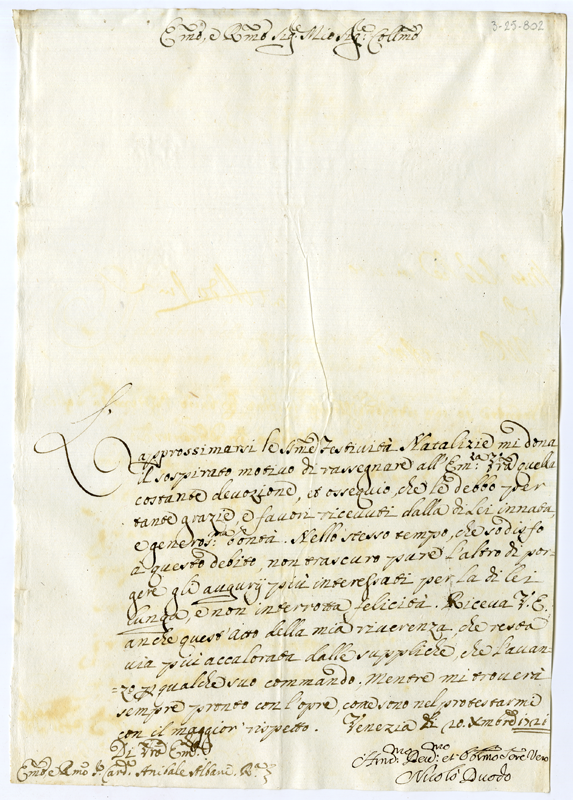 3-25-802
Emo, e Rmo Sig.r Mio Sig.r Collmo
L'approssimarsi le Sme Festività Natalizie mi dona
il sospirato motivo di rassegnare all'Em.za Vra quella
costante devozione, et ossequio, che le debbo per
tante grazie, e favori ricevuti dalla di lei innata,
e generosa bontà. Nello stesso tempo, che sodisfo
a questo debito, non trascuro pure l'altro di por-
gere gli augurij più interessati per la di lei
lunga, e non interrotta felicità. Riceva V.E.
anche quest'atto della mia riverenza, che resta
via più accalorata dalle suppliche, che l'avan-
zo p qualche suo commando, mentre mi troverà
sempre pronto con l'opre, come sono nel protestarmi
con il maggior rispetto. Venezia li 20. Xmbre 1721
Di Vra Emza
Emo e Rmo S. Card. Anibale Albani. Rma
Umo Devmo et Obbmo Sre Vero
Nicolò Duodo